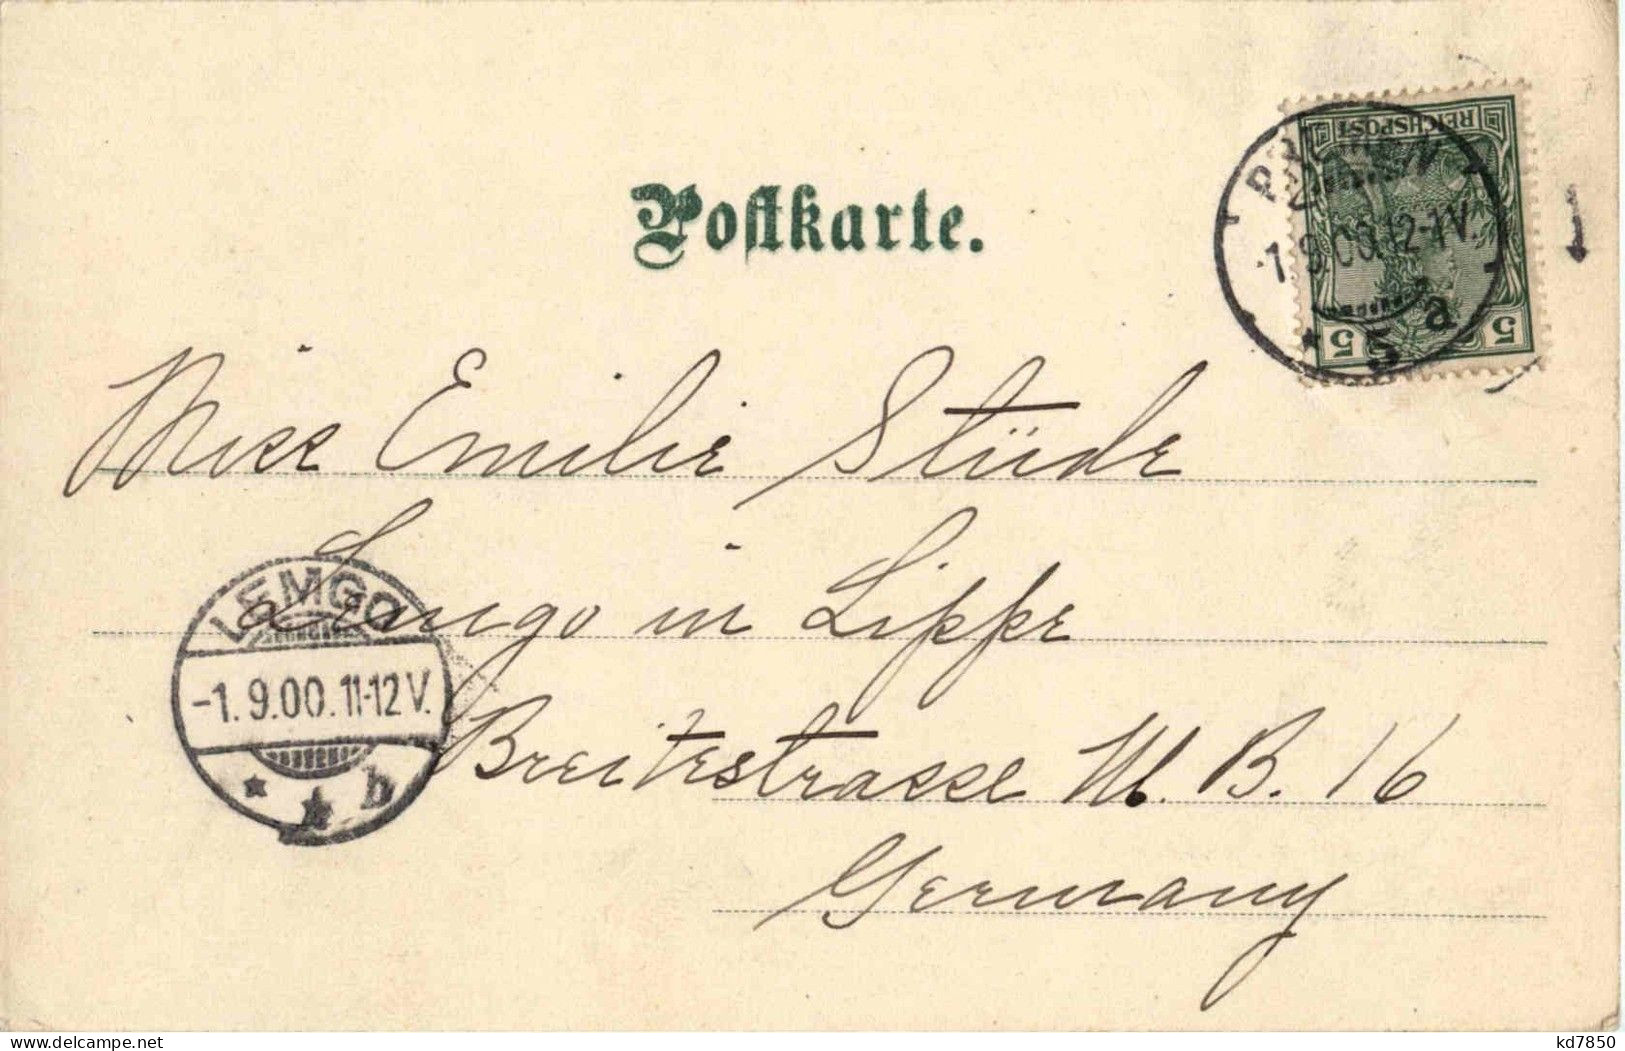 REICHSPOST
5 5
1.9.00.12-1V.
* 5 a
Postkarte.
Miss Emilie Stüde
Lemgo in Lippe
LEMGO
-1.9.00.11-12V.
* * b
Breitestrasse N. B. 16
Germany
kd7850